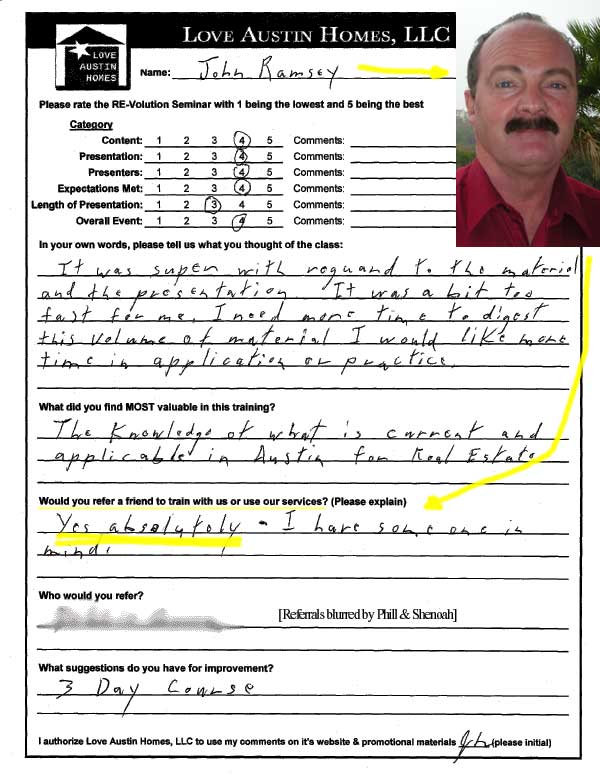 LOVE AUSTIN HOMES
LOVE AUSTIN HOMES, LLC
Name: John Ramsey
Please rate the RE-Volution Seminar with 1 being the lowest and 5 being the best
Category
Content: 1 2 3 4 5 Comments:
Presentation: 1 2 3 4 5 Comments:
Presenters: 1 2 3 4 5 Comments:
Expectations Met: 1 2 3 4 5 Comments:
Length of Presentation: 1 2 3 4 5 Comments:
Overall Event: 1 2 3 4 5 Comments:
In your own words, please tell us what you thought of the class:
It was super with reguard to the material
and the presentation. It was a bit too
fast for me. I need more time to digest
this volume of material I would like more
time in application or practice.
What did you find MOST valuable in this training?
The Knowledge of what is current and
applicable in Austin for Real Estate
Would you refer a friend to train with us or use our services? (Please explain)
Yes absolutely - I have someone in
mind.
Who would you refer?
[Referrals blurred by Phill & Shenoah]
What suggestions do you have for improvement?
3 Day Course
I authorize Love Austin Homes, LLC to use my comments on it's website & promotional materials (please initial)